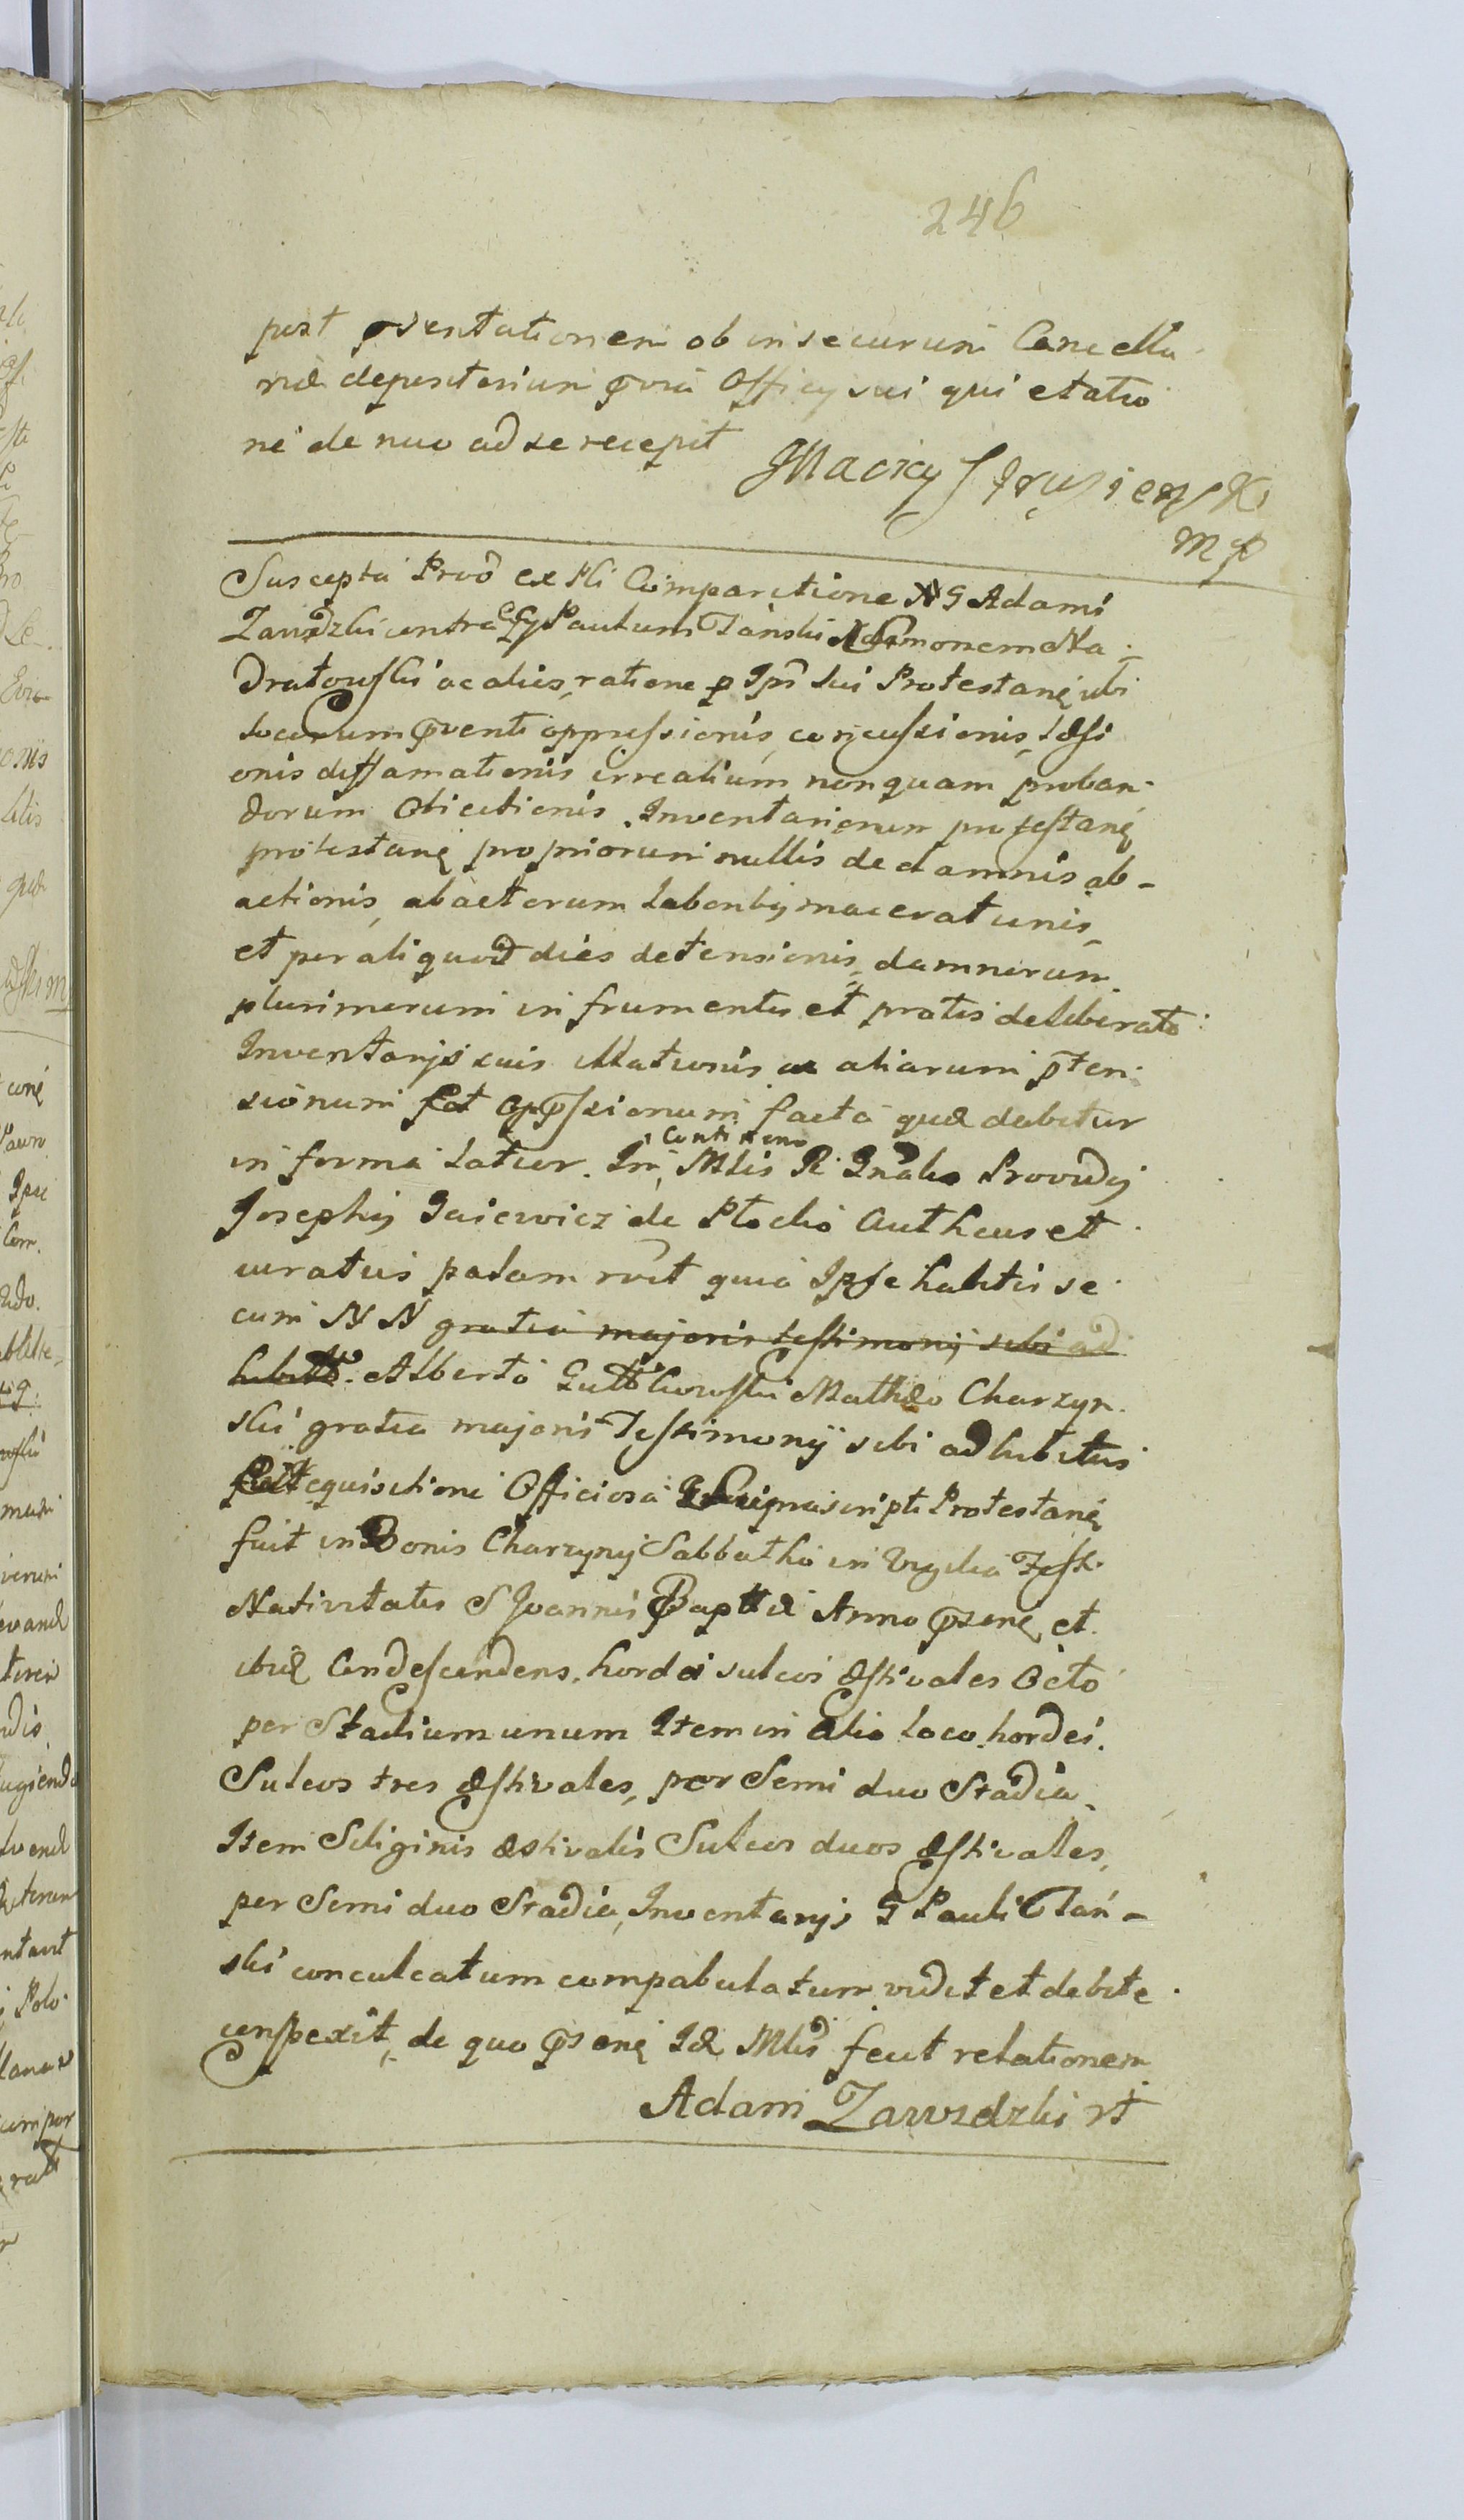 246
post pŝentationem ob insecurum Cancella
riæ depositorium p̄via Officij sui qui etatio
ne de nuo ad se recepit
Maciey Strusienski
mp
Suscepta Prvō ex Hi Comparitione NG Adami
Zawdzki contra GG Paulum Tański Simonem Na-
dratowski ac alios, ratione p Ipsi sui Protestanę ubi
locorum p̄venti oppressionis, concussionis, læsi
onis diffamationis irrealium nonquam proban-
dorum Obiectionis. Inventariorum protestanę
protestanę propriorum nullis de damnis ab-
actionis, abactorum laboribus macerationis,
et per aliquod dies detensionis, damnorum
plurimorum in frumentis et pratis deliberato
Inventarijs suis illationis ac aliarum p̄ten-
sionum et opp̄ssionum facta quæ dabitur
in forma latior. In Continenti Mlis R. Gnalis Providus
Josephus Gaiewicz de Plocko Authenus et
iuratus palam rvit quia Ipse habitis se
cum N N gratia majoris testimonij sibi ad
hibitis. Alberto Gutkowski Mathæo Charzyn
ski gratia majoris Testimonij sibi adhibitis
requisitione Officiosa suprascripti Protestanę
fuit in Bonis Charzyny Sabbatho in Vigilia Festi
Nativitatis S Joannis Baptæ Anno p̄senę et
ibid Condescendens. hordei sulcos æstivales Octo
per Stadium unum Item in Alio loco hordei
Sulcos tres æstivales, per Semi duo Stadia,
Item Siliginis æstivalis Sulcos duos æstivales,
per Semi duo Stadia, Inventarijs G Pauli Tań-
ski conculcatum compabulatum vidit et debite
conspexit, de quo p̄senę Id Mlis fecit relationem
Adam Zawdzki rt